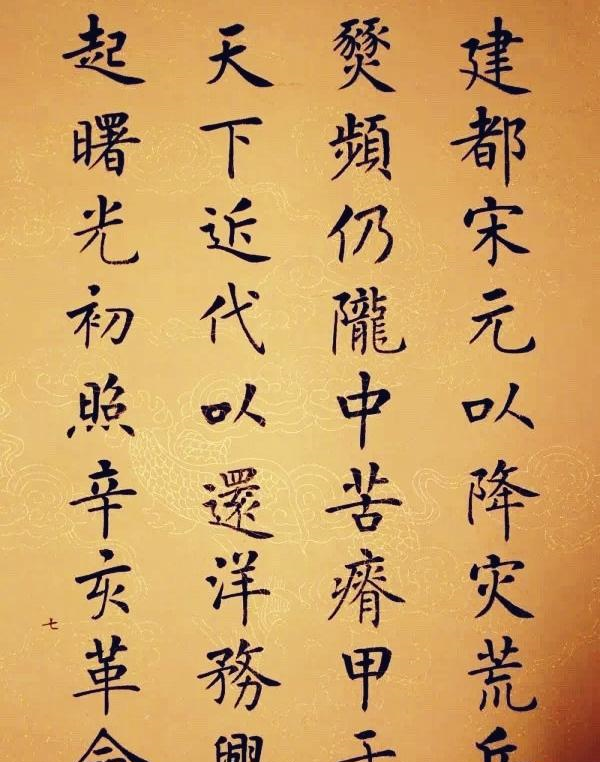 建都宋元以降灾荒兵
燹頻仍隴中苦瘠甲于
天下近代以還洋務興
起曙光初照辛亥革命
七